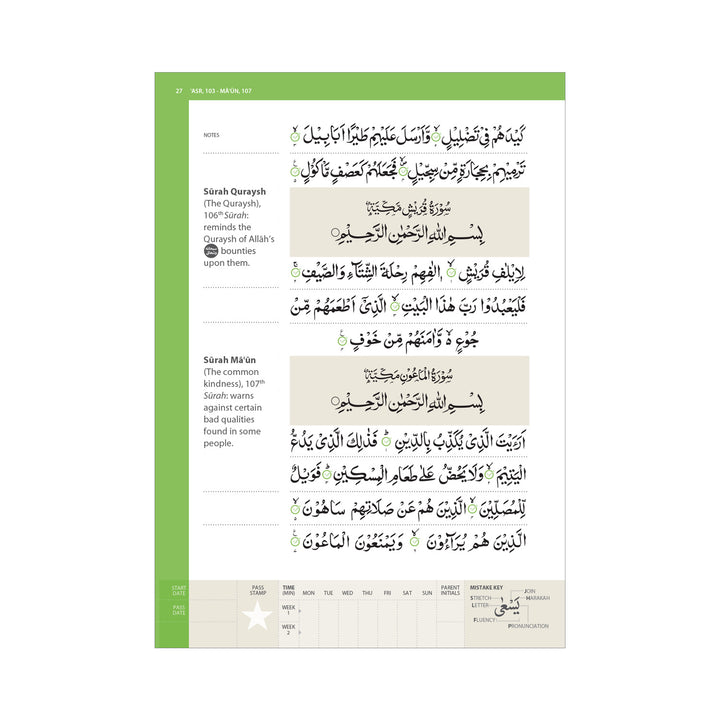 27 'ASR, 103 - MĀ'ŪN, 107
NOTES
كَيْدَهُمْ فِيْ تَضْلِيْلٍ وَّاَرْسَلَ عَلَيْهِمْ طَيْرًا اَبَابِيْلَ
تَرْمِيْهِمْ بِحِجَارَةٍ مِّنْ سِجِّيْلٍ فَجَعَلَهُمْ كَعَصْفٍ مَّاْكُوْلٍ
Sūrah Quraysh
(The Quraysh),
106th Sūrah:
reminds the
Quraysh of Allāh's
bounties
upon them.
سُوْرَةُ قُرَيْشٍ مَكِّيَّةٌ
بِسْمِ اللهِ الرَّحْمٰنِ الرَّحِيْمِ
لِاِيْلٰفِ قُرَيْشٍ اٖلٰفِهِمْ رِحْلَةَ الشِّتَآءِ وَالصَّيْفِ
فَلْيَعْبُدُوْا رَبَّ هٰذَا الْبَيْتِ الَّذِيْٓ اَطْعَمَهُمْ مِّنْ
جُوْعٍ وَّاٰمَنَهُمْ مِّنْ خَوْفٍ
Sūrah Mā'ūn
(The common
kindness), 107th
Sūrah: warns
against certain
bad qualities
found in some
people.
سُوْرَةُ الْمَاعُوْنِ مَكِّيَّةٌ
بِسْمِ اللهِ الرَّحْمٰنِ الرَّحِيْمِ
اَرَءَيْتَ الَّذِيْ يُكَذِّبُ بِالدِّيْنِ فَذٰلِكَ الَّذِيْ يَدُعُّ
الْيَتِيْمَ وَلَا يَحُضُّ عَلٰى طَعَامِ الْمِسْكِيْنِ فَوَيْلٌ
لِّلْمُصَلِّيْنَ الَّذِيْنَ هُمْ عَنْ صَلَاتِهِمْ سَاهُوْنَ
الَّذِيْنَ هُمْ يُرَآءُوْنَ وَيَمْنَعُوْنَ الْمَاعُوْنَ
START DATE
PASS DATE
PASS STAMP
TIME (MIN) MON TUE WED THU FRI SAT SUN PARENT INITIALS
WEEK 1
WEEK 2
MISTAKE KEY
STRETCH
LETTER
FLUENCY
يَسْعٰى
JOIN
HARAKAH
PRONUNCIATION